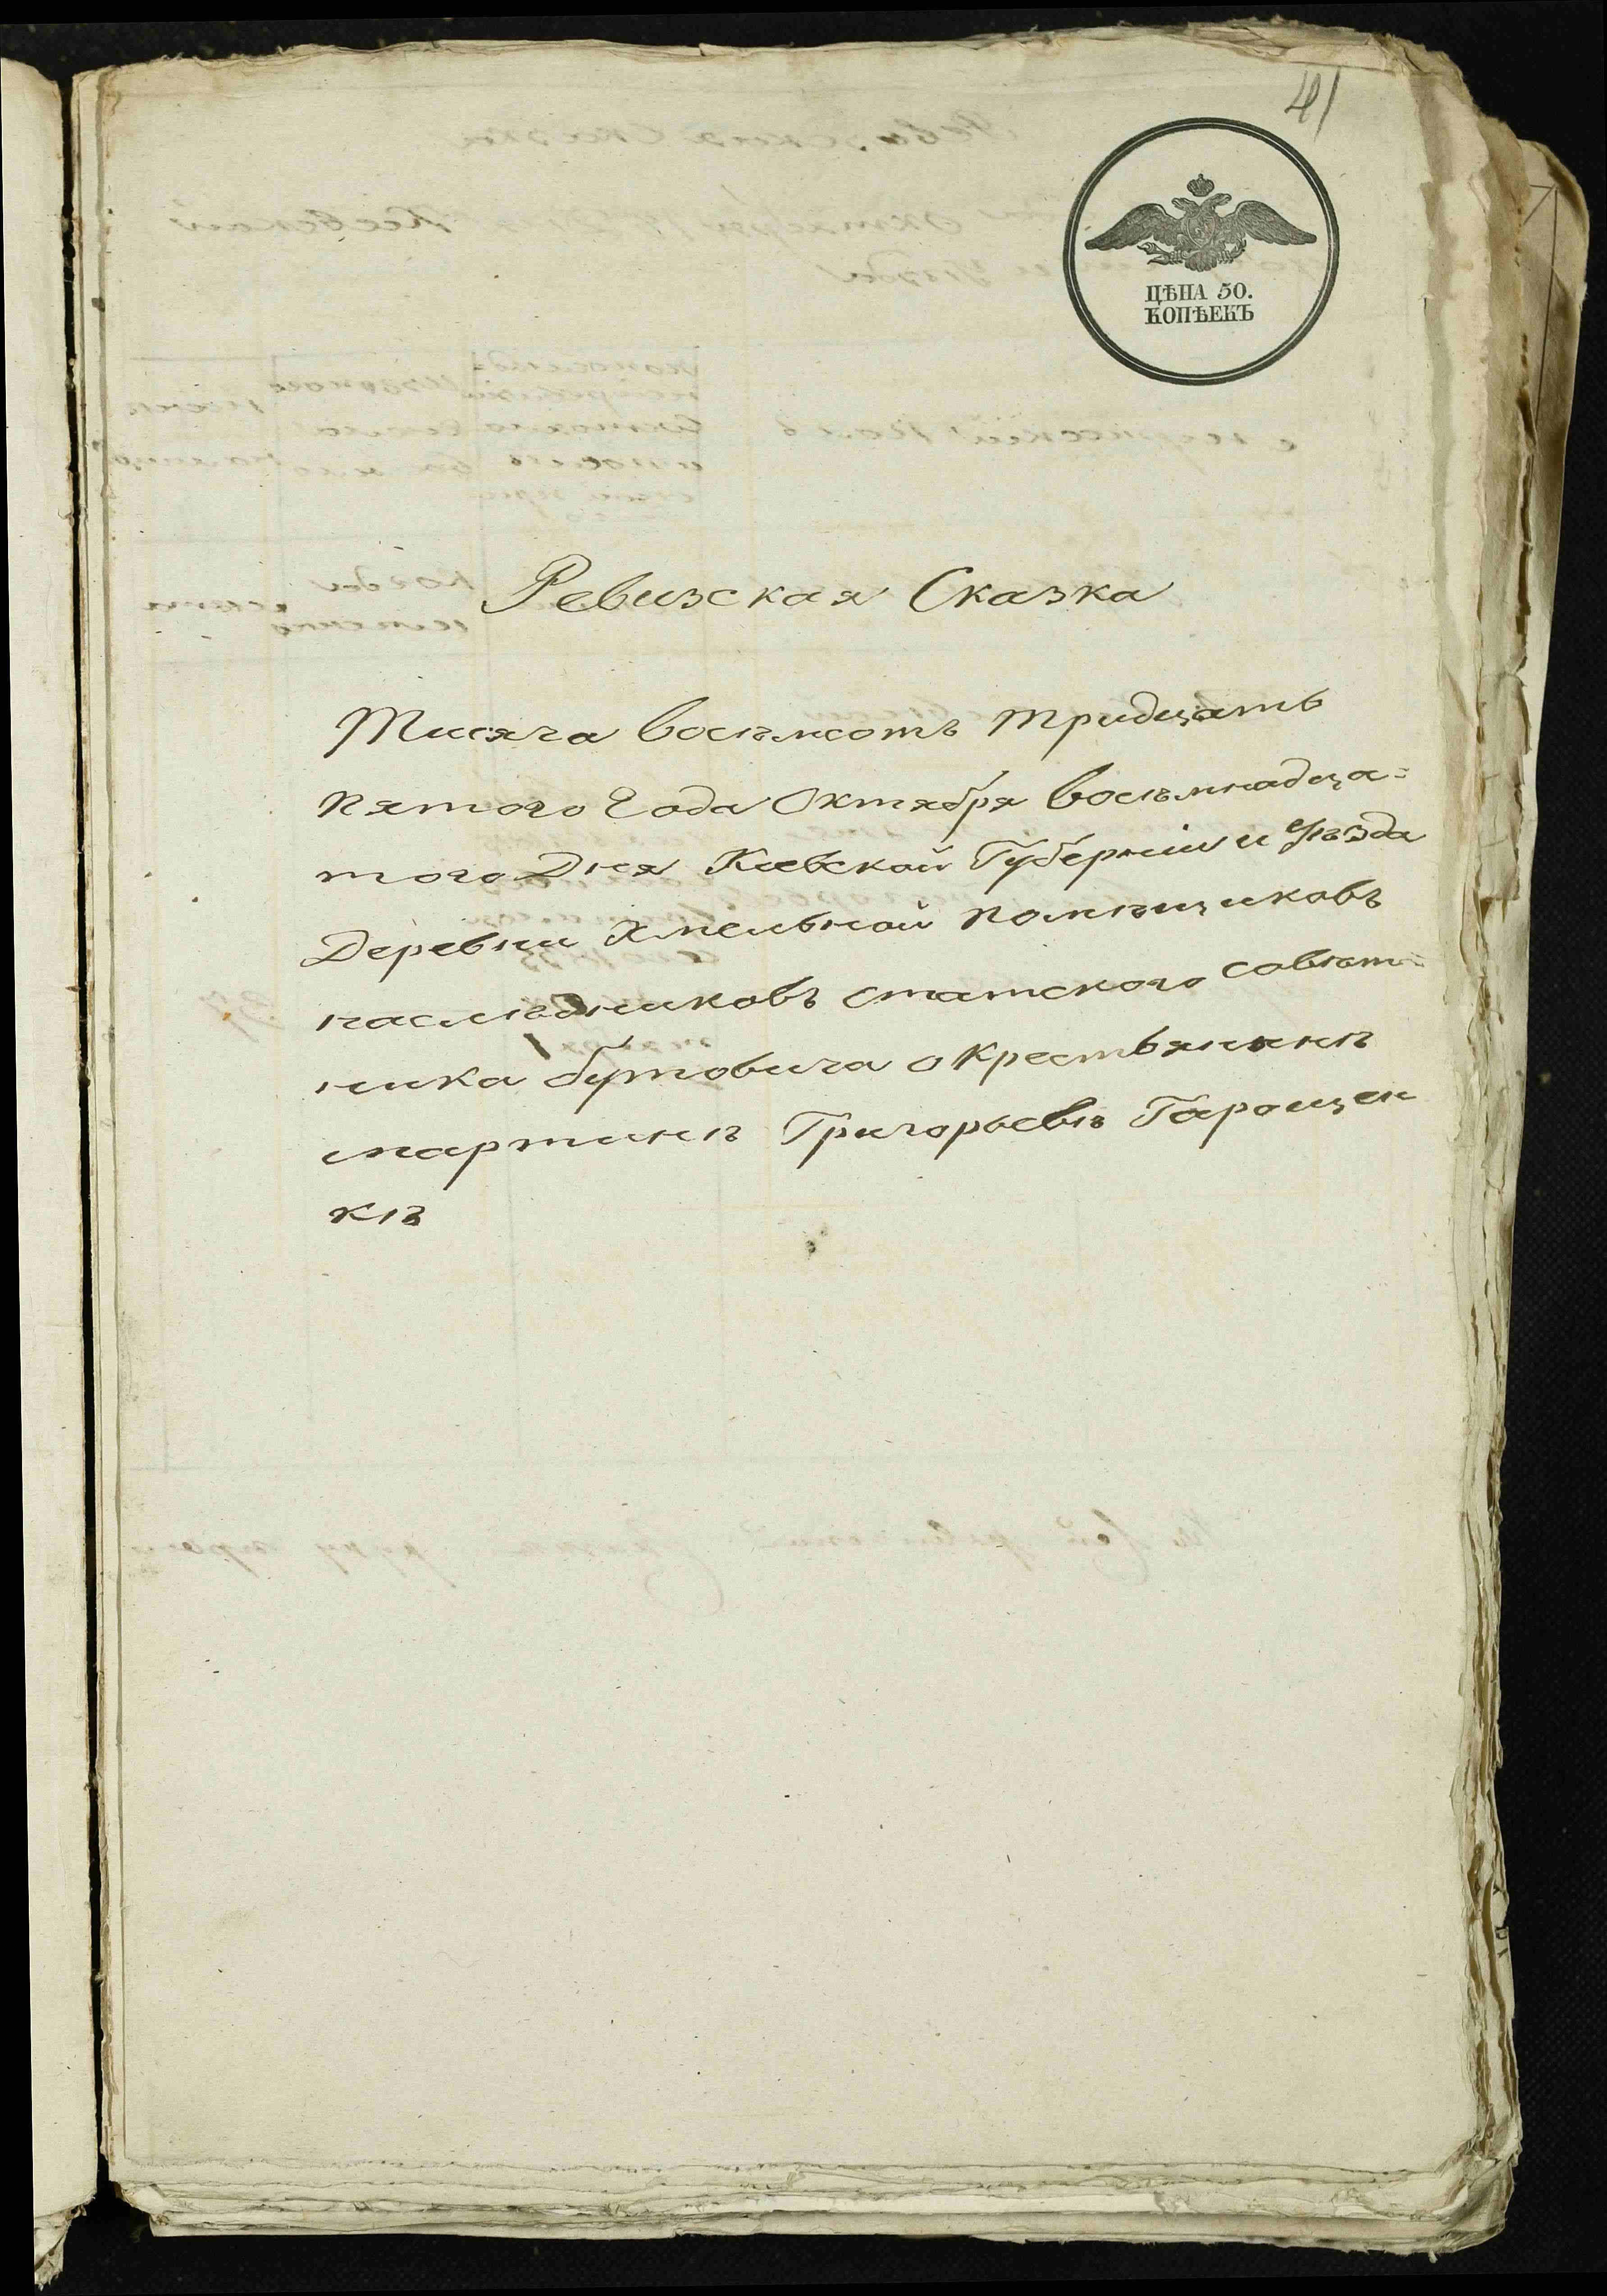 41
ЦѢНА 50.
КОПѢЕКЪ
Ревизская Сказка
Тисяча восѣмсотъ тридцять
пятого Года Октября восѣмнадца=
того Дня Киевской Губерніи и уѣзда
Деревни Хмельной помѣщиковъ
наслѣдниковъ статского совѣт=
ника бутовича о крестьянинѣ
мартинѣ Григорьевѣ Гарощен
кѣ